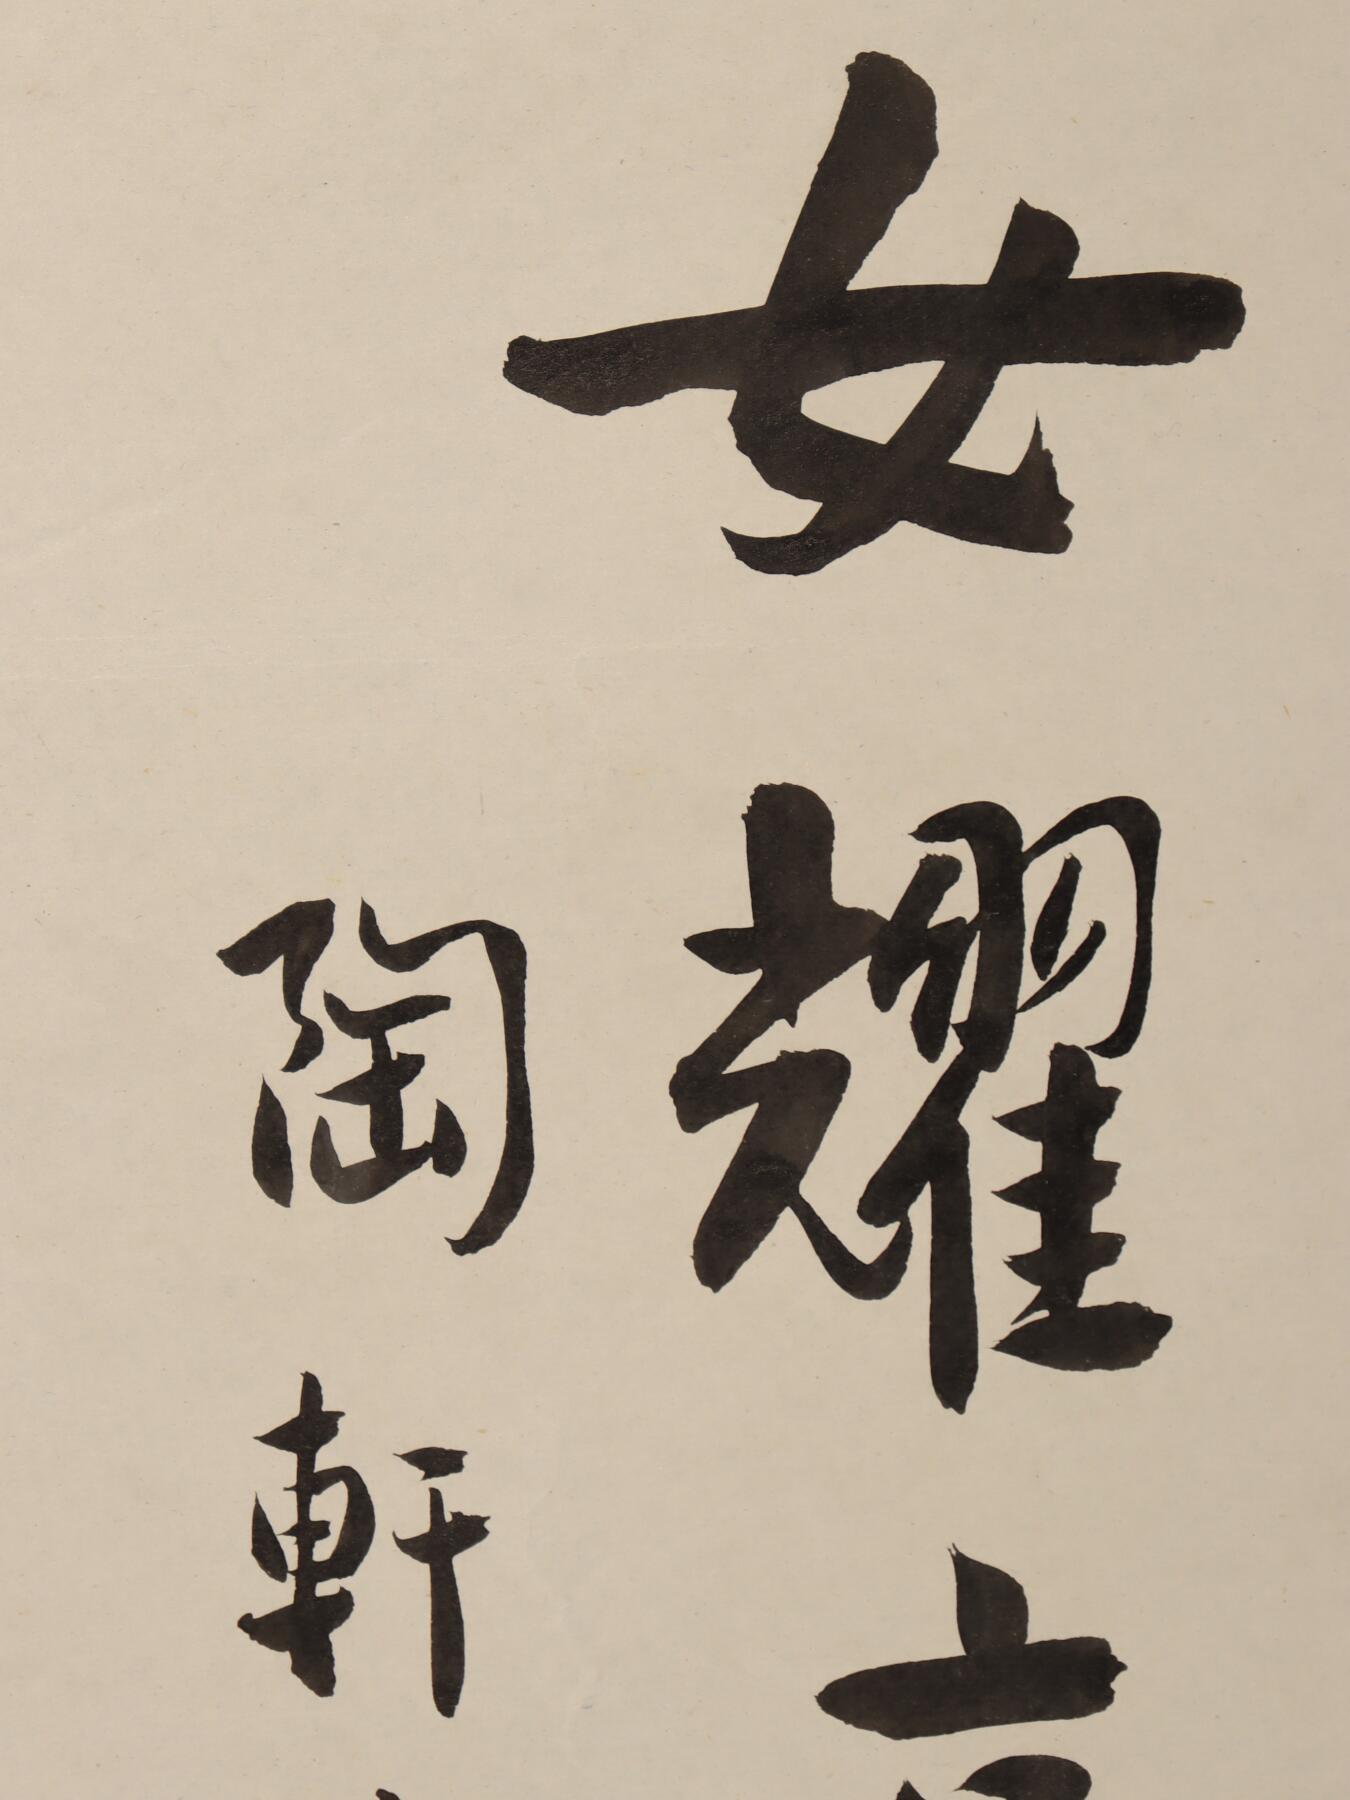 女耀
陶軒